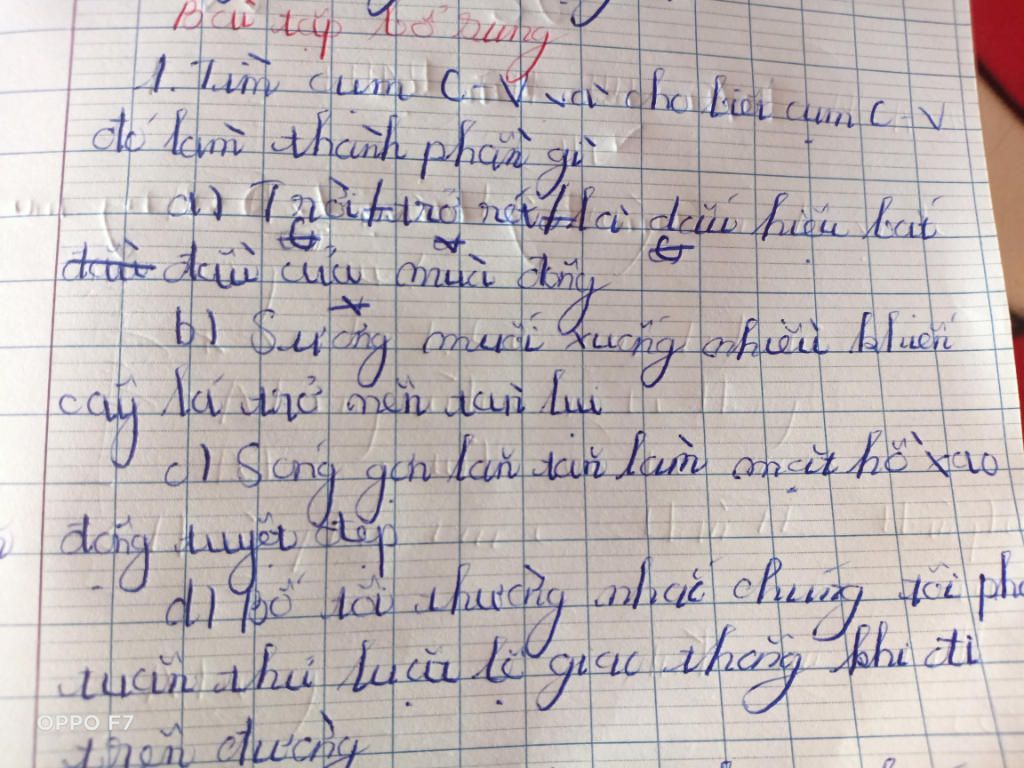 Bài tập bổ sung
1. Tìm cụm C-V và cho biết cụm C-V
đó làm thành phần gì
a) Trời trở rét là dấu hiệu bắt
đầu của mùa đông
b) Sương muối xuống nhiều khiến
cây lá trở nên tàn lụi
c) Sóng gợn lăn tăn làm mặt hồ xao
động tuyệt đẹp
d) Bố tôi thường nhắc chúng tôi phả
tuân thủ luật lệ giao thông khi đi
trên đường
OPPO F7